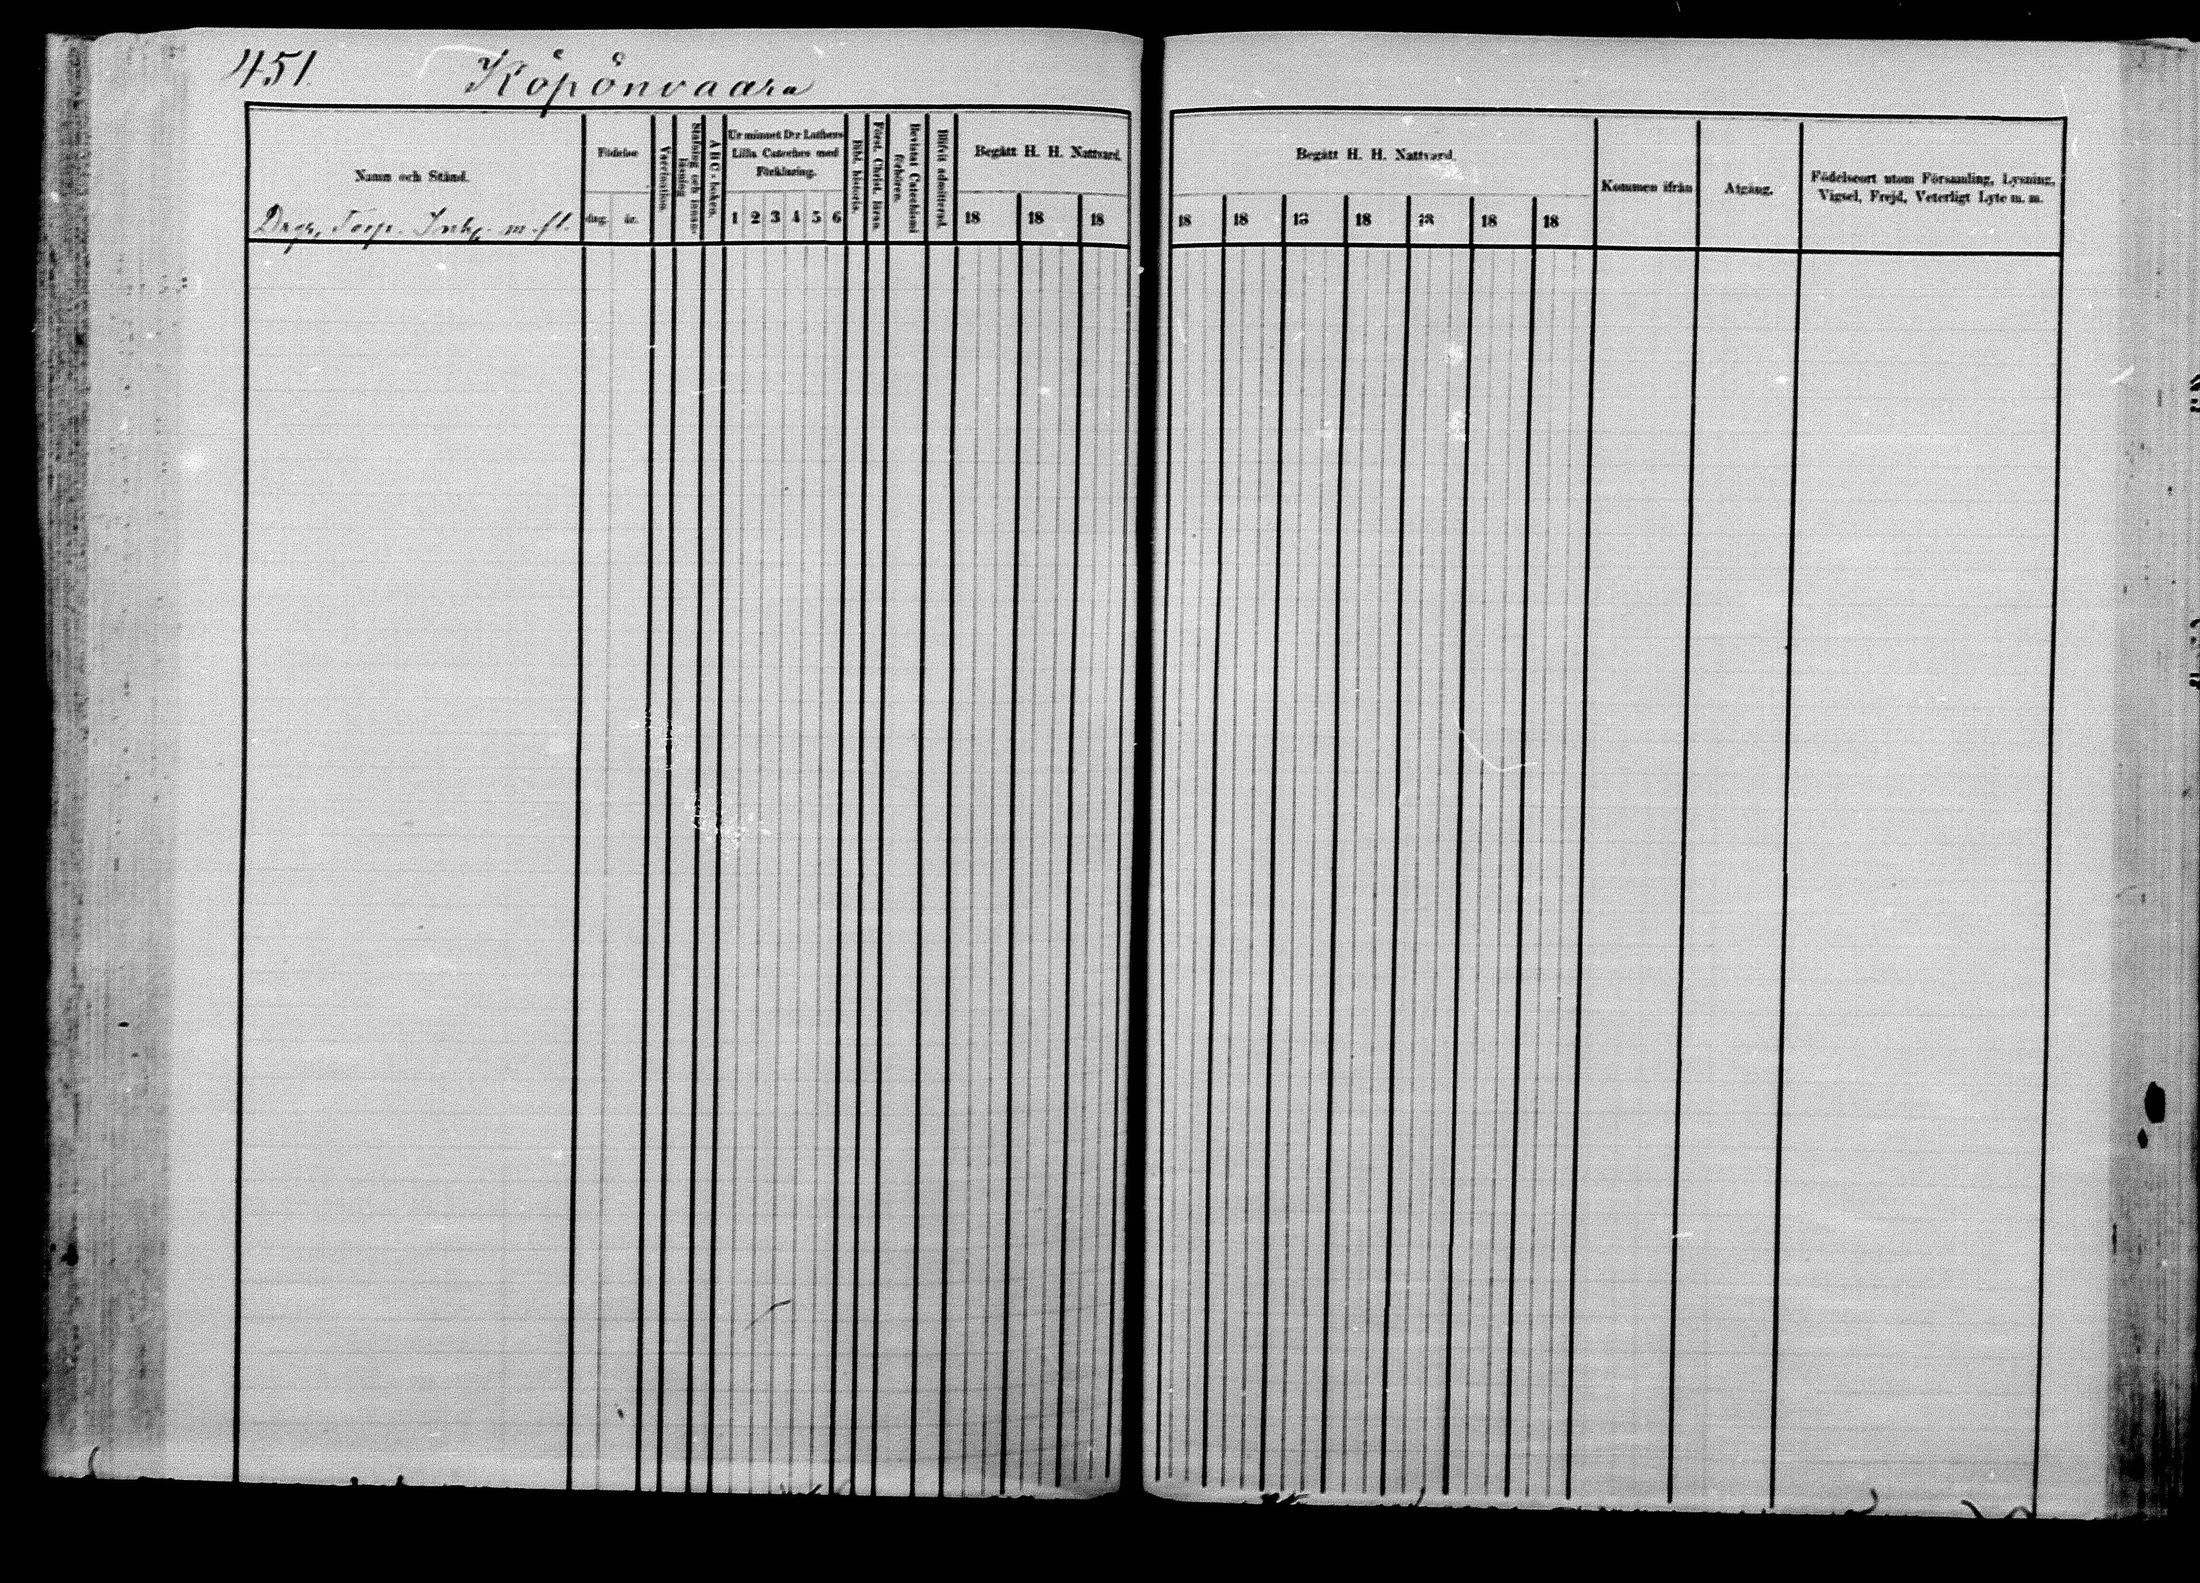 451. Köpönvaara
Namn och Stånd.
Drgr, Torp. Inhg. m. fl.
Födelse
dag.
år.
Vaccination.
Stafning och innanläsning
A B C-boken.
Ur minnet D:r Luthers
Lilla Cateches med
Förklaring.
1 2 3 4 5 6
Bibl. historia.
Först. Christ. läran.
Bevistat Catechismi
förhören.
Blifvit admitterad.
Begått H. H. Nattvard.
18 18 18
Begått H. H. Nattvard.
18 18 18 18 18 18 18
Kommen ifrån
Afgång.
Födelseort utom Församling, Lysning,
Vigsel, Frejd, Veterligt Lyte m. m.